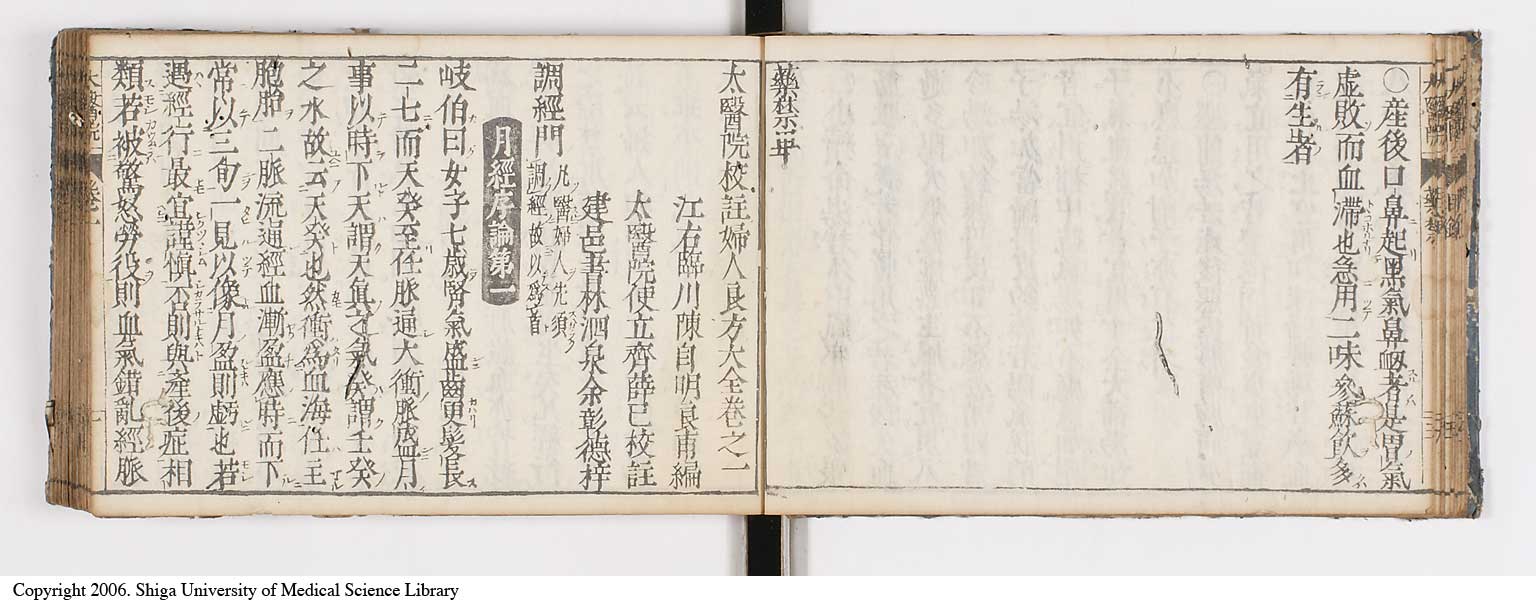 〇産後口鼻起黒氣鼻衂者是胃氣
虚敗而血滯也急用二味參蘇飲多
有生者
藥禁畢
太醫院校註婦人良方大全卷之一
江右臨川陳自明良甫編
太醫院使立齊薛已校註
建邑書林泗泉余彰德梓
調經門
凡醫婦人先須
調經故以爲首
月經序論第一
岐伯曰女子七歳腎氣盛齒更髮長
二七而天癸至任脈通大衝脈盛月
事以時下天謂天眞之氣癸謂壬癸
之水故云天癸也然衝爲血海任主
胞胎二脈流通經血漸盈應時而下
常以三旬一見以像月盈則虧也若
遇經行最宜謹愼否則與產後症相
類若被驚怒勞役則血氣錯亂經脈
Copyright 2006. Shiga University of Medical Science Library